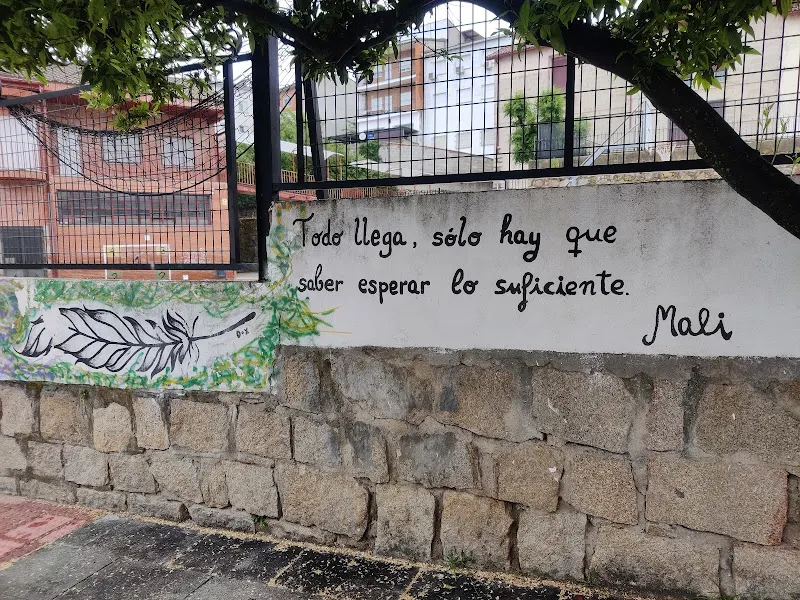 Todo llega, sólo hay que
saber esperar lo suficiente.
Mali